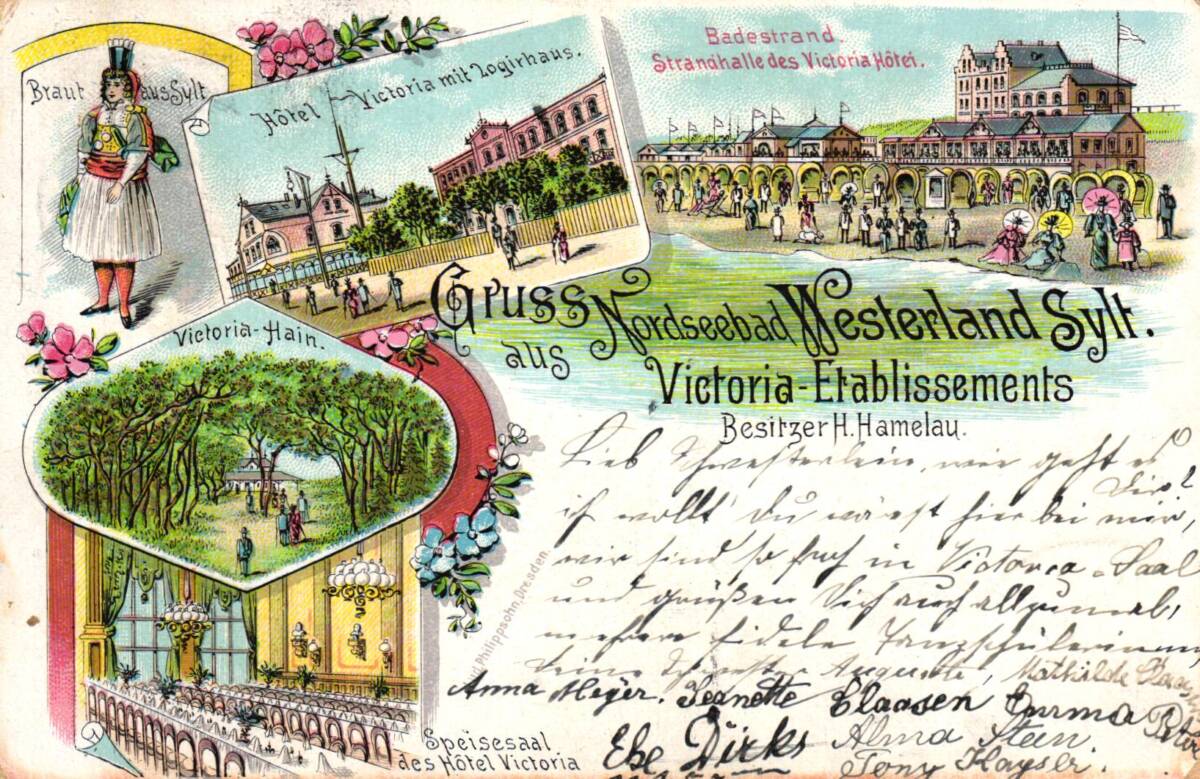 Braut aus Sylt
Hôtel Victoria mit Logirhaus.
Badestrand.
Strandhalle des Victoria Hôtel.
Gruss aus Nordseebad Westerland Sylt.
Victoria-Etablissements
Besitzer H. Hamelau.
Victoria-Hain.
Speisesaal
des Hôtel Victoria
Philippsohn, Dresden.
Lieb Schwesterlein, wie geht es
Dir?
ich wollt' Du wärest hier bei mir,
wir sind so froh in Victoria-Saal
und grüßen Dich auch allzumal,
mehrere fidele Tanzschülerinnen
Deine Schwester Auguste, Mathilde
Anna Meyer. Jeanette Claasen Irma
Elbe Dirks Alma Steen.
Tony Kayser.